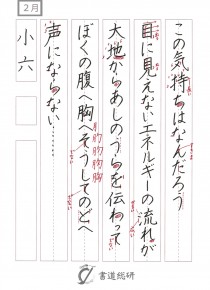 2月
この気持ちはなんだろう
目に見えないエネルギーの流れが
大地からあしのうらを伝わって
ぼくの腹へ胸へそうしてのどへ
声にならない……
小六
書道総研